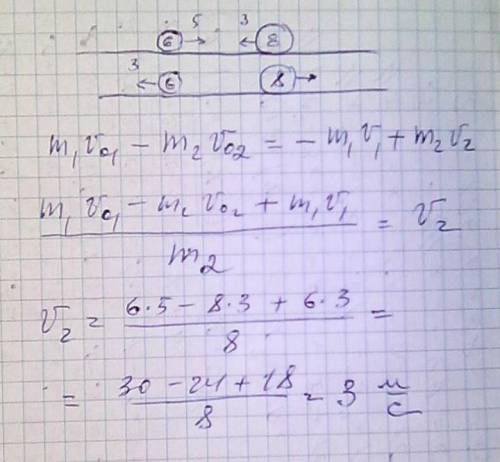 5 3
6 → ← 8
3
← 6 8 →
m₁v₀₁ − m₂v₀₂ = − m₁v₁ + m₂v₂
(m₁v₀₁ − m₂v₀₂ + m₁v₁) / m₂ = v₂
v₂ = (6·5 − 8·3 + 6·3) / 8 =
= (30 − 24 + 18) / 8 = 3 м/с